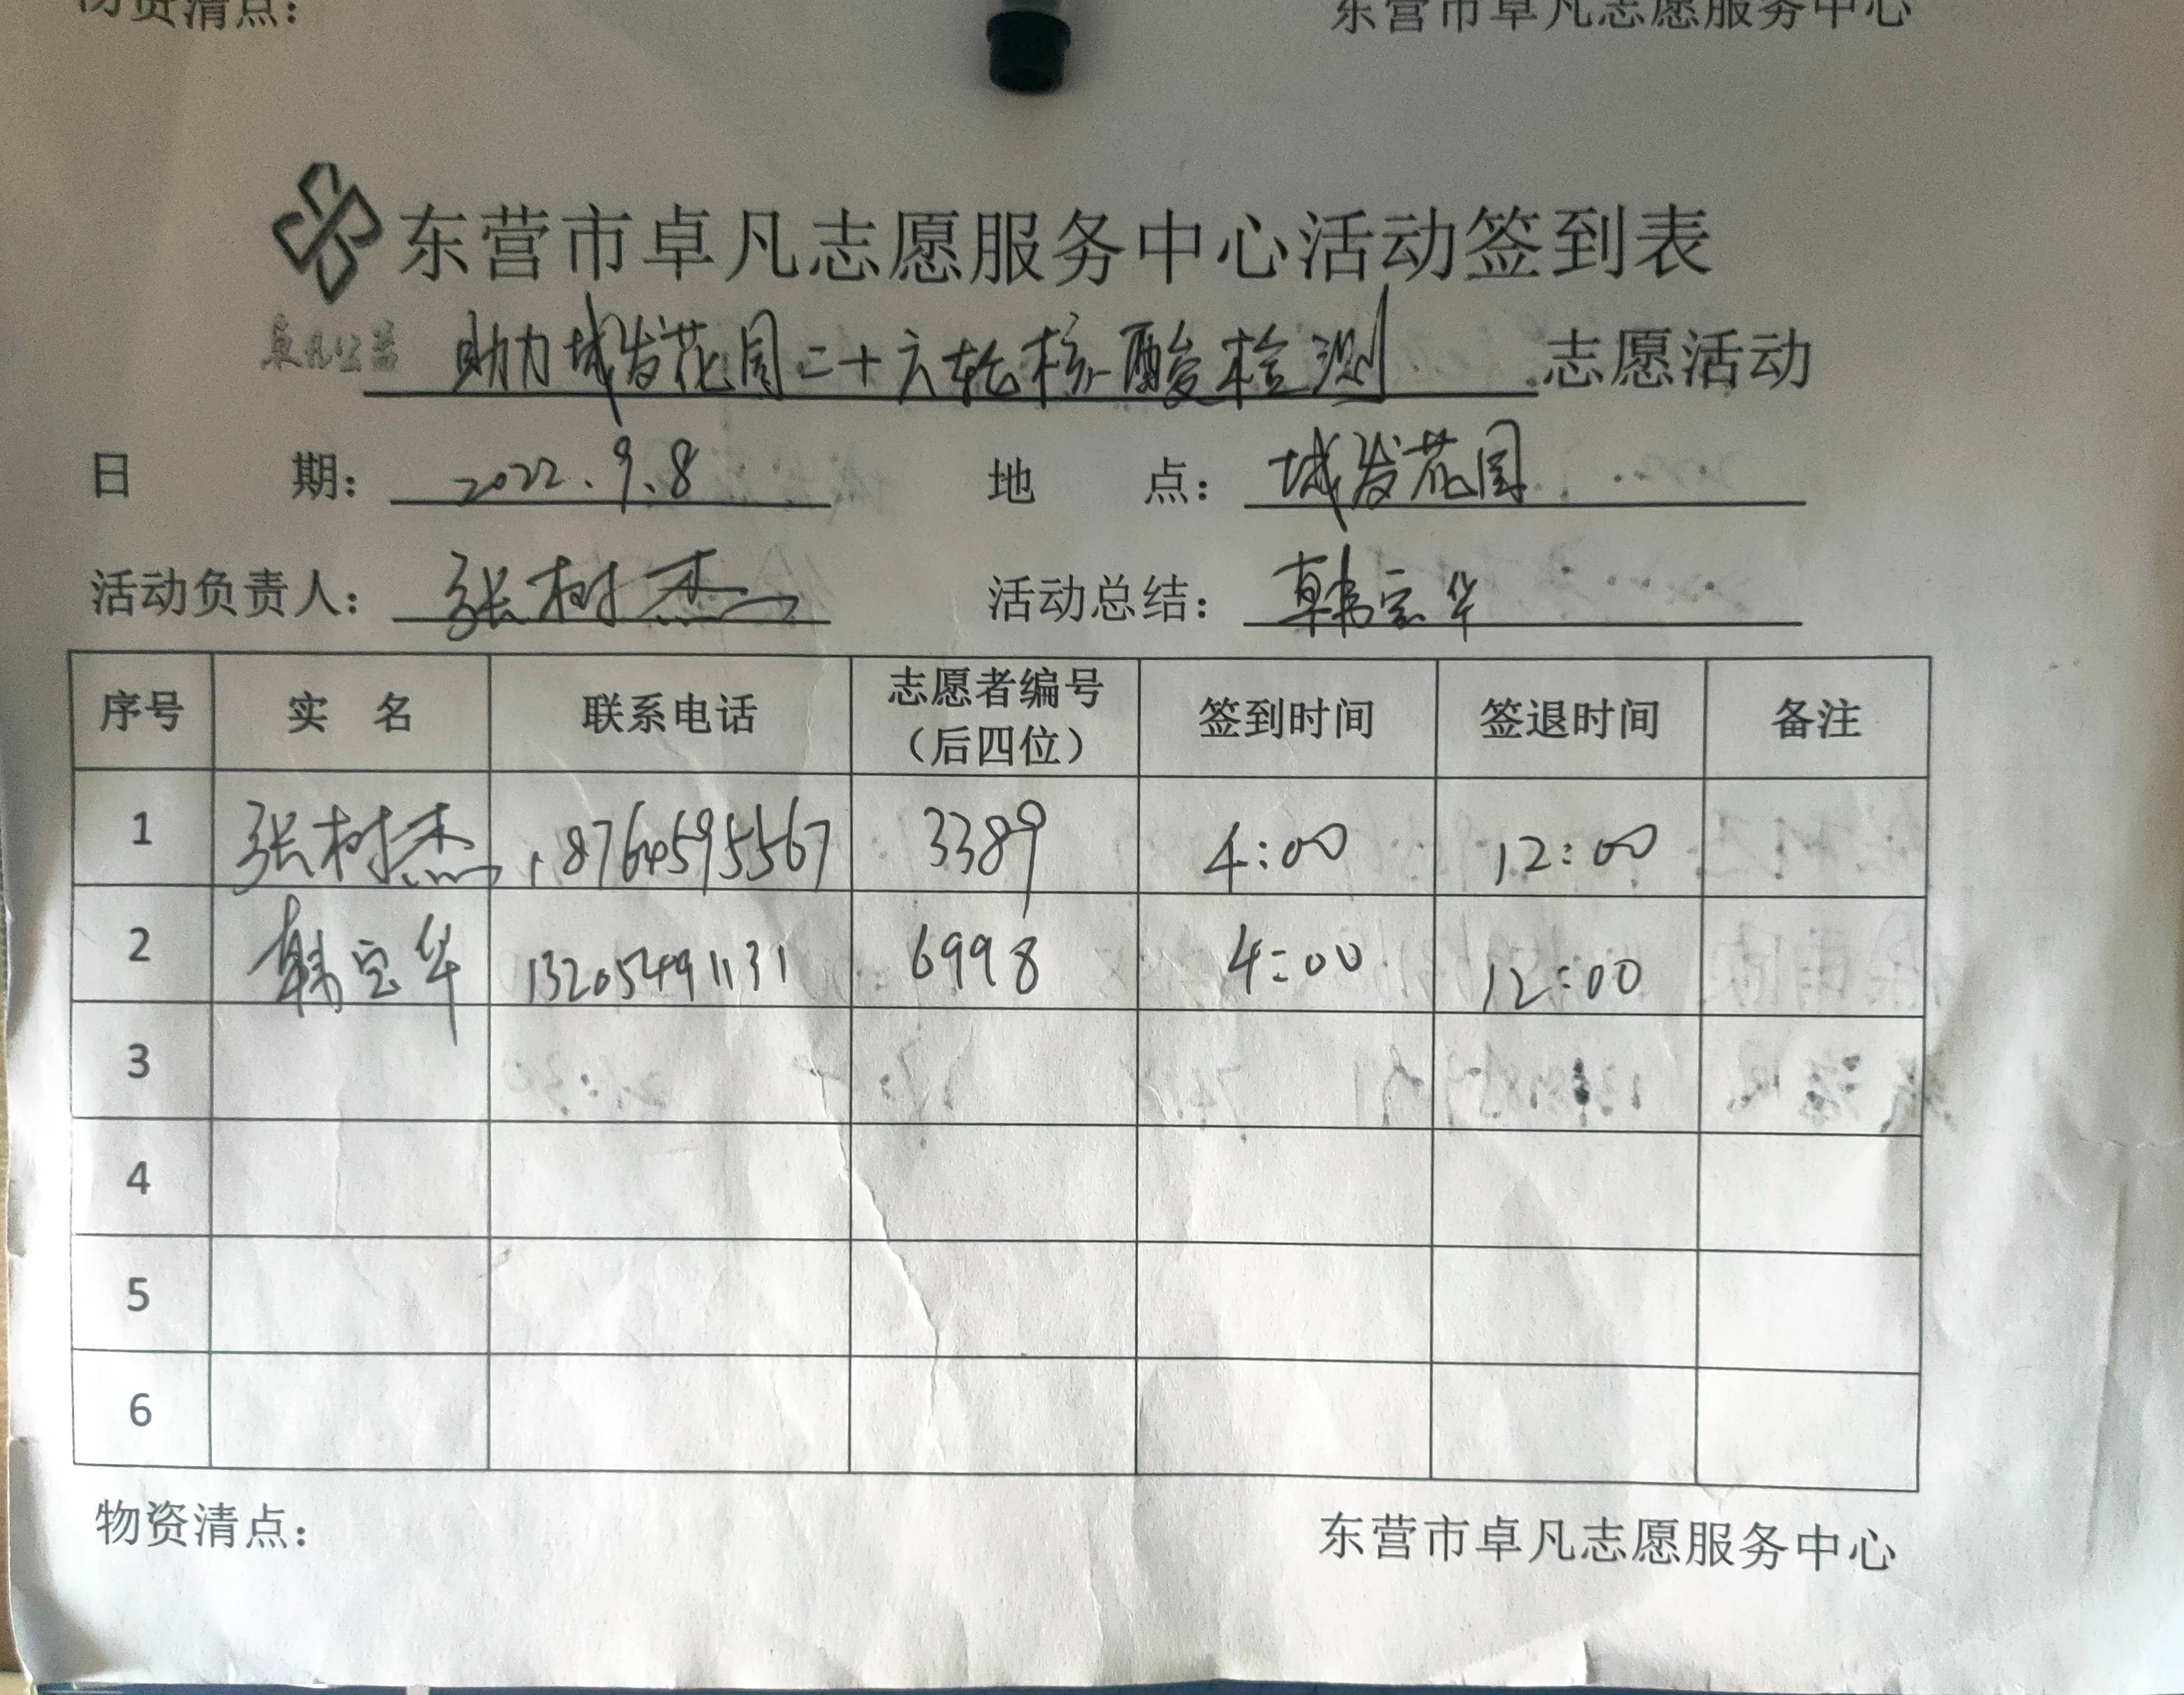 物资清点：
东营市卓凡志愿服务中心
东营市卓凡志愿服务中心活动签到表
卓凡公益
助力城发花园二十六轮核酸检测 志愿活动
日 期： 2022.9.8 地 点： 城发花园
活动负责人： 张树杰 活动总结： 韩宝华
序号 实 名 联系电话 志愿者编号（后四位） 签到时间 签退时间 备注
1 张树杰 18764595567 3389 4:00 12:00
2 韩宝华 13205491131 6998 4:00 12:00
3
4
5
6
物资清点：
东营市卓凡志愿服务中心